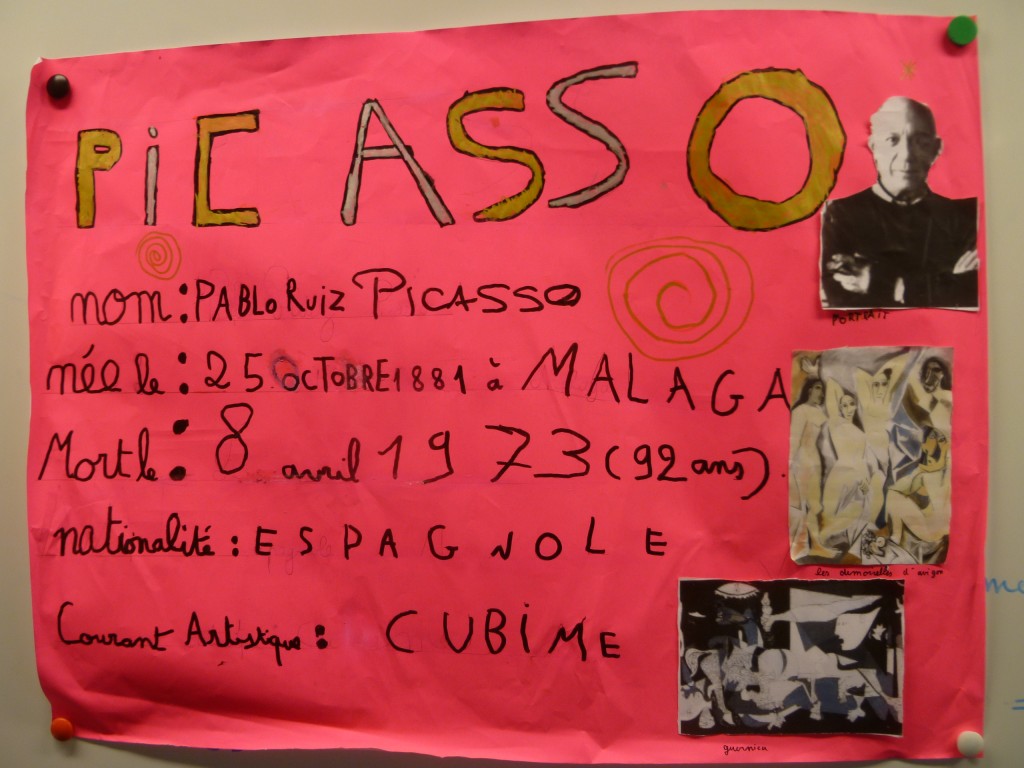 PiCASSO
nom: PABLO Ruiz PiCASSO
PORTRAIT
née le: 25 OCTOBRE 1881 à MALAGA
Mort le: 8 avril 1973 (92 ans).
nationalité: ESPAGNOLE
les demoiselles d'avignon
Courant Artistique: CUBiME
guernica